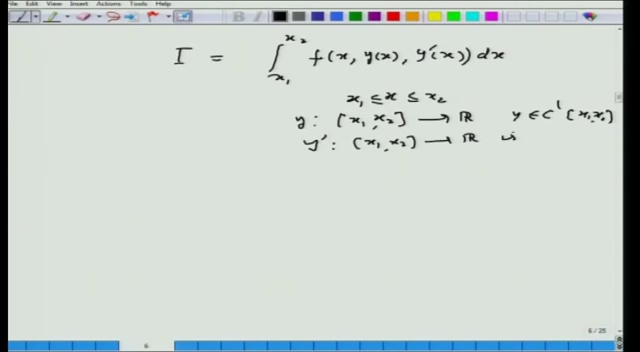 File Edit View Insert Actions Tools Help
I = ∫_{x₁}^{x₂} f(x, y(x), y'(x)) dx
x₁ ≤ x ≤ x₂
y : [x₁, x₂] → ℝ y ∈ C¹ [x₁, x₂]
y' : [x₁, x₂] → ℝ is
6 / 25
6